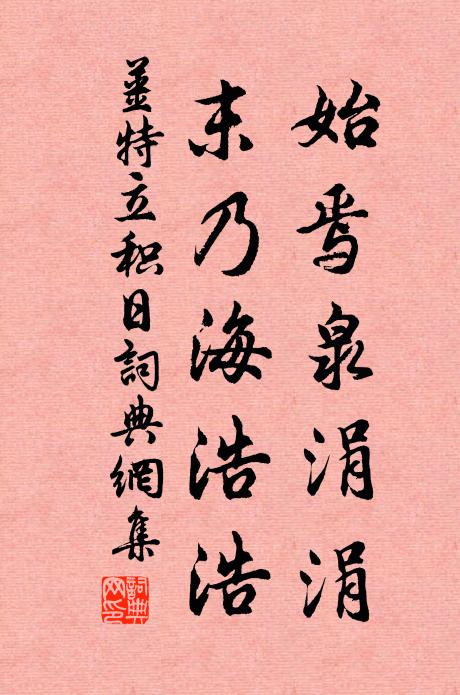 始焉泉涓涓
末乃海浩浩
姜特立积日詞典網集
詞典網印